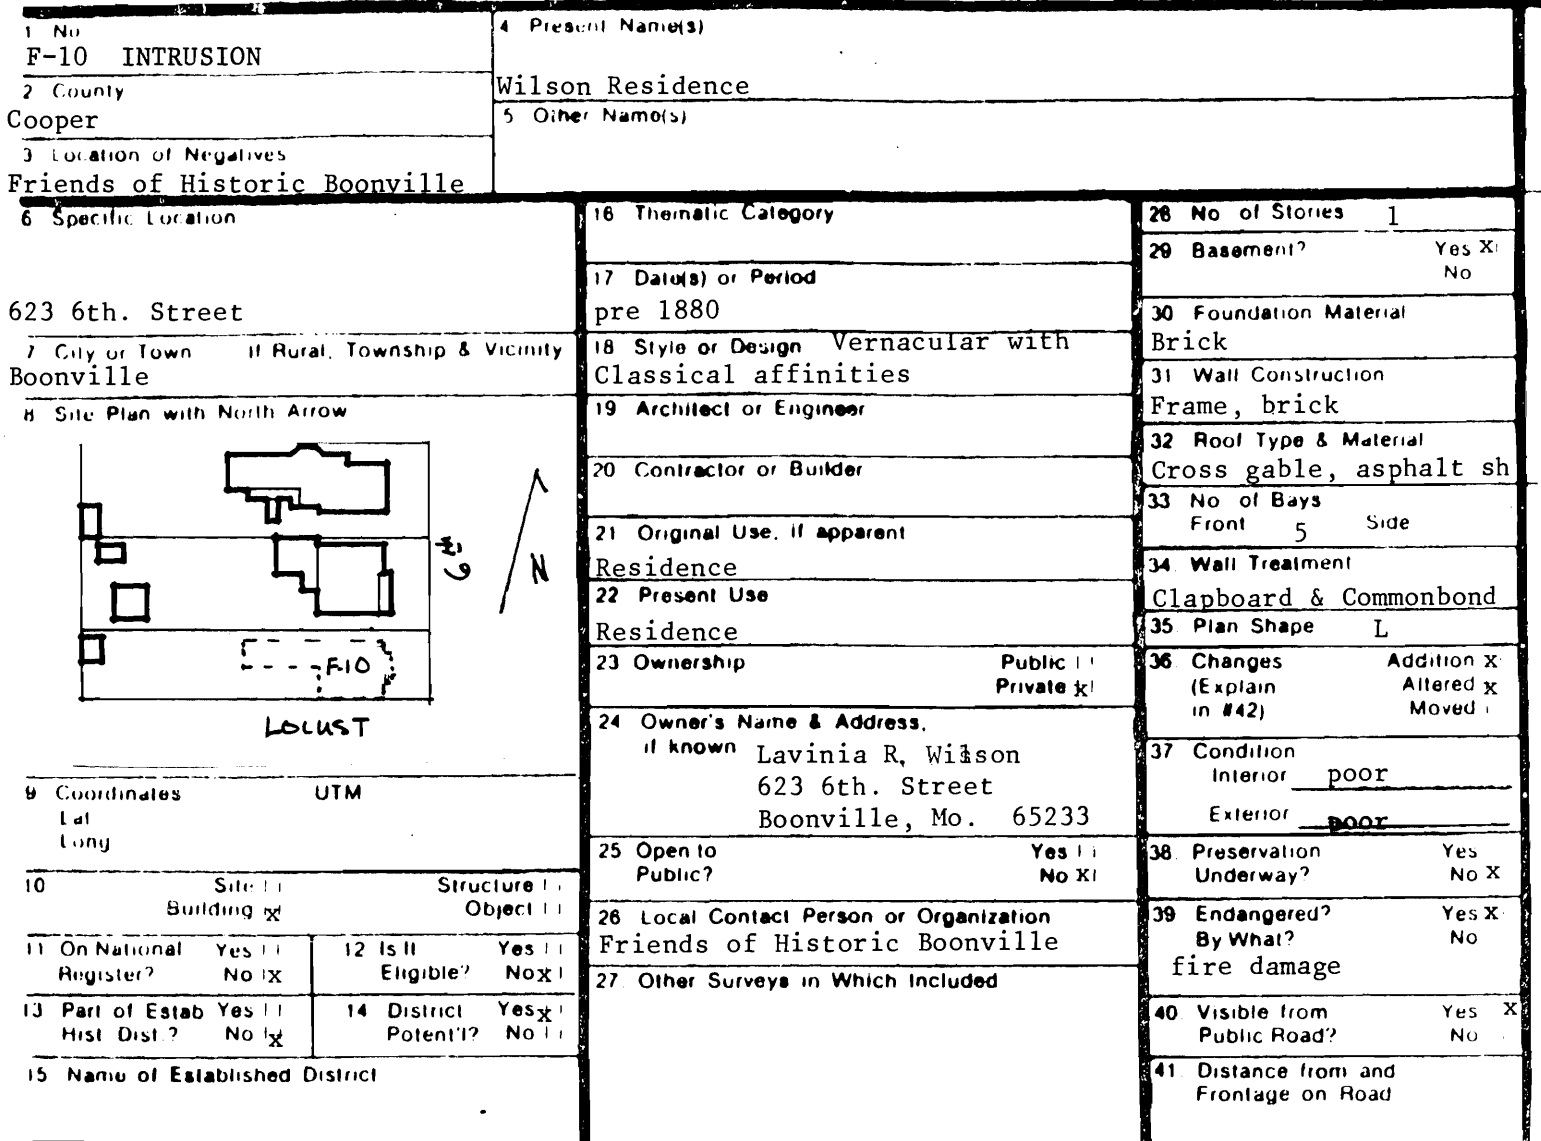 1 No
F-10 INTRUSION
2 County
Cooper
3 Location of Negatives
Friends of Historic Boonville
4 Present Name(s)
Wilson Residence
5 Other Name(s)
6 Specific Location
623 6th. Street
7 City or Town If Rural, Township & Vicinity
Boonville
8 Site Plan with North Arrow
6th
N
F-10
LOCUST
9 Coordinates UTM
Lat
Long
10 Site
Structure
Building X
Object
11 On National Register? Yes
No X
12 Is It Eligible? Yes
No X
13 Part of Estab Hist. Dist.? Yes
No X
14 District Potent'l? Yes X
No
15 Name of Established District
16 Thematic Category
17 Date(s) or Period
pre 1880
18 Style or Design Vernacular with
Classical affinities
19 Architect or Engineer
20 Contractor or Builder
21 Original Use, if apparent
Residence
22 Present Use
Residence
23 Ownership Public
Private X
24 Owner's Name & Address,
if known Lavinia R, Wilson
623 6th. Street
Boonville, Mo. 65233
25 Open to Yes
Public? No X
26 Local Contact Person or Organization
Friends of Historic Boonville
27 Other Surveys in Which Included
28 No of Stories 1
29 Basement? Yes X
No
30 Foundation Material
Brick
31 Wall Construction
Frame, brick
32 Roof Type & Material
Cross gable, asphalt sh
33 No of Bays
Front 5 Side
34 Wall Treatment
Clapboard & Commonbond
35 Plan Shape L
36 Changes Addition X
(Explain Altered X
in #42) Moved
37 Condition
Interior poor
Exterior poor
38 Preservation Yes
Underway? No X
39 Endangered? Yes X
By What? No
fire damage
40 Visible from Yes X
Public Road? No
41 Distance from and
Frontage on Road